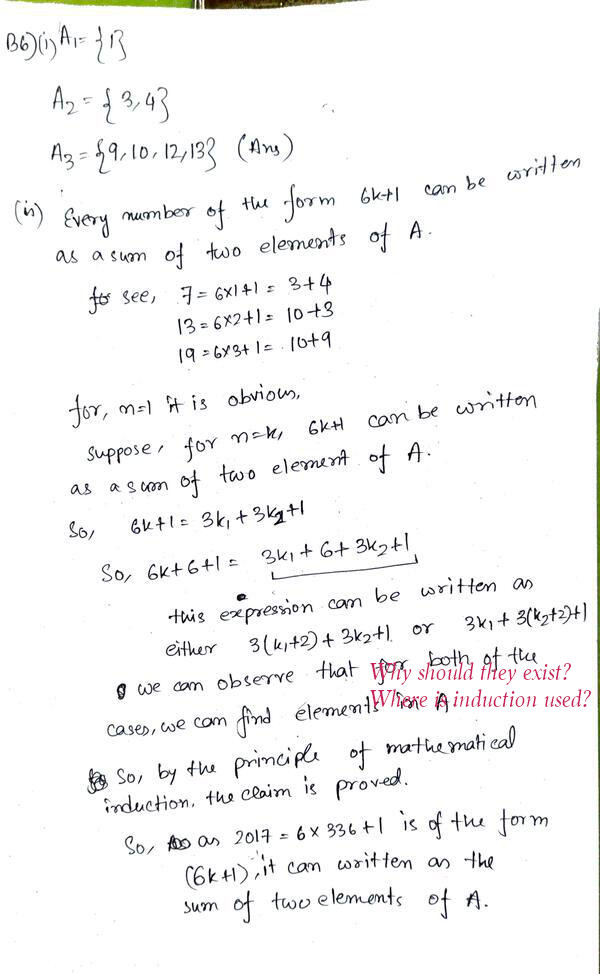 B6)(i) A₁ = {1}
A₂ = {3,4}
A₃ = {9,10,12,13} (Ans)
(ii) Every number of the form 6k+1 can be written
as a sum of two elements of A.
see, 7 = 6×1+1 = 3+4
13 = 6×2+1 = 10+3
19 = 6×3+1 = 10+9
for, n=1 it is obvious,
suppose, for n=k, 6k+1 can be written
as a sum of two element of A.
So, 6k+1 = 3k₁+3k₂+1
So, 6k+6+1 = 3k₁+6+3k₂+1
this expression can be written as
either 3(k₁+2)+3k₂+1 or 3k₁+3(k₂+2)+1
we can observe that for both of the
Why should they exist?
cases, we can find elements in A
Where is induction used?
So, by the principle of mathematical
induction, the claim is proved.
So, as 2017 = 6×336+1 is of the form
(6k+1), it can written as the
sum of two elements of A.